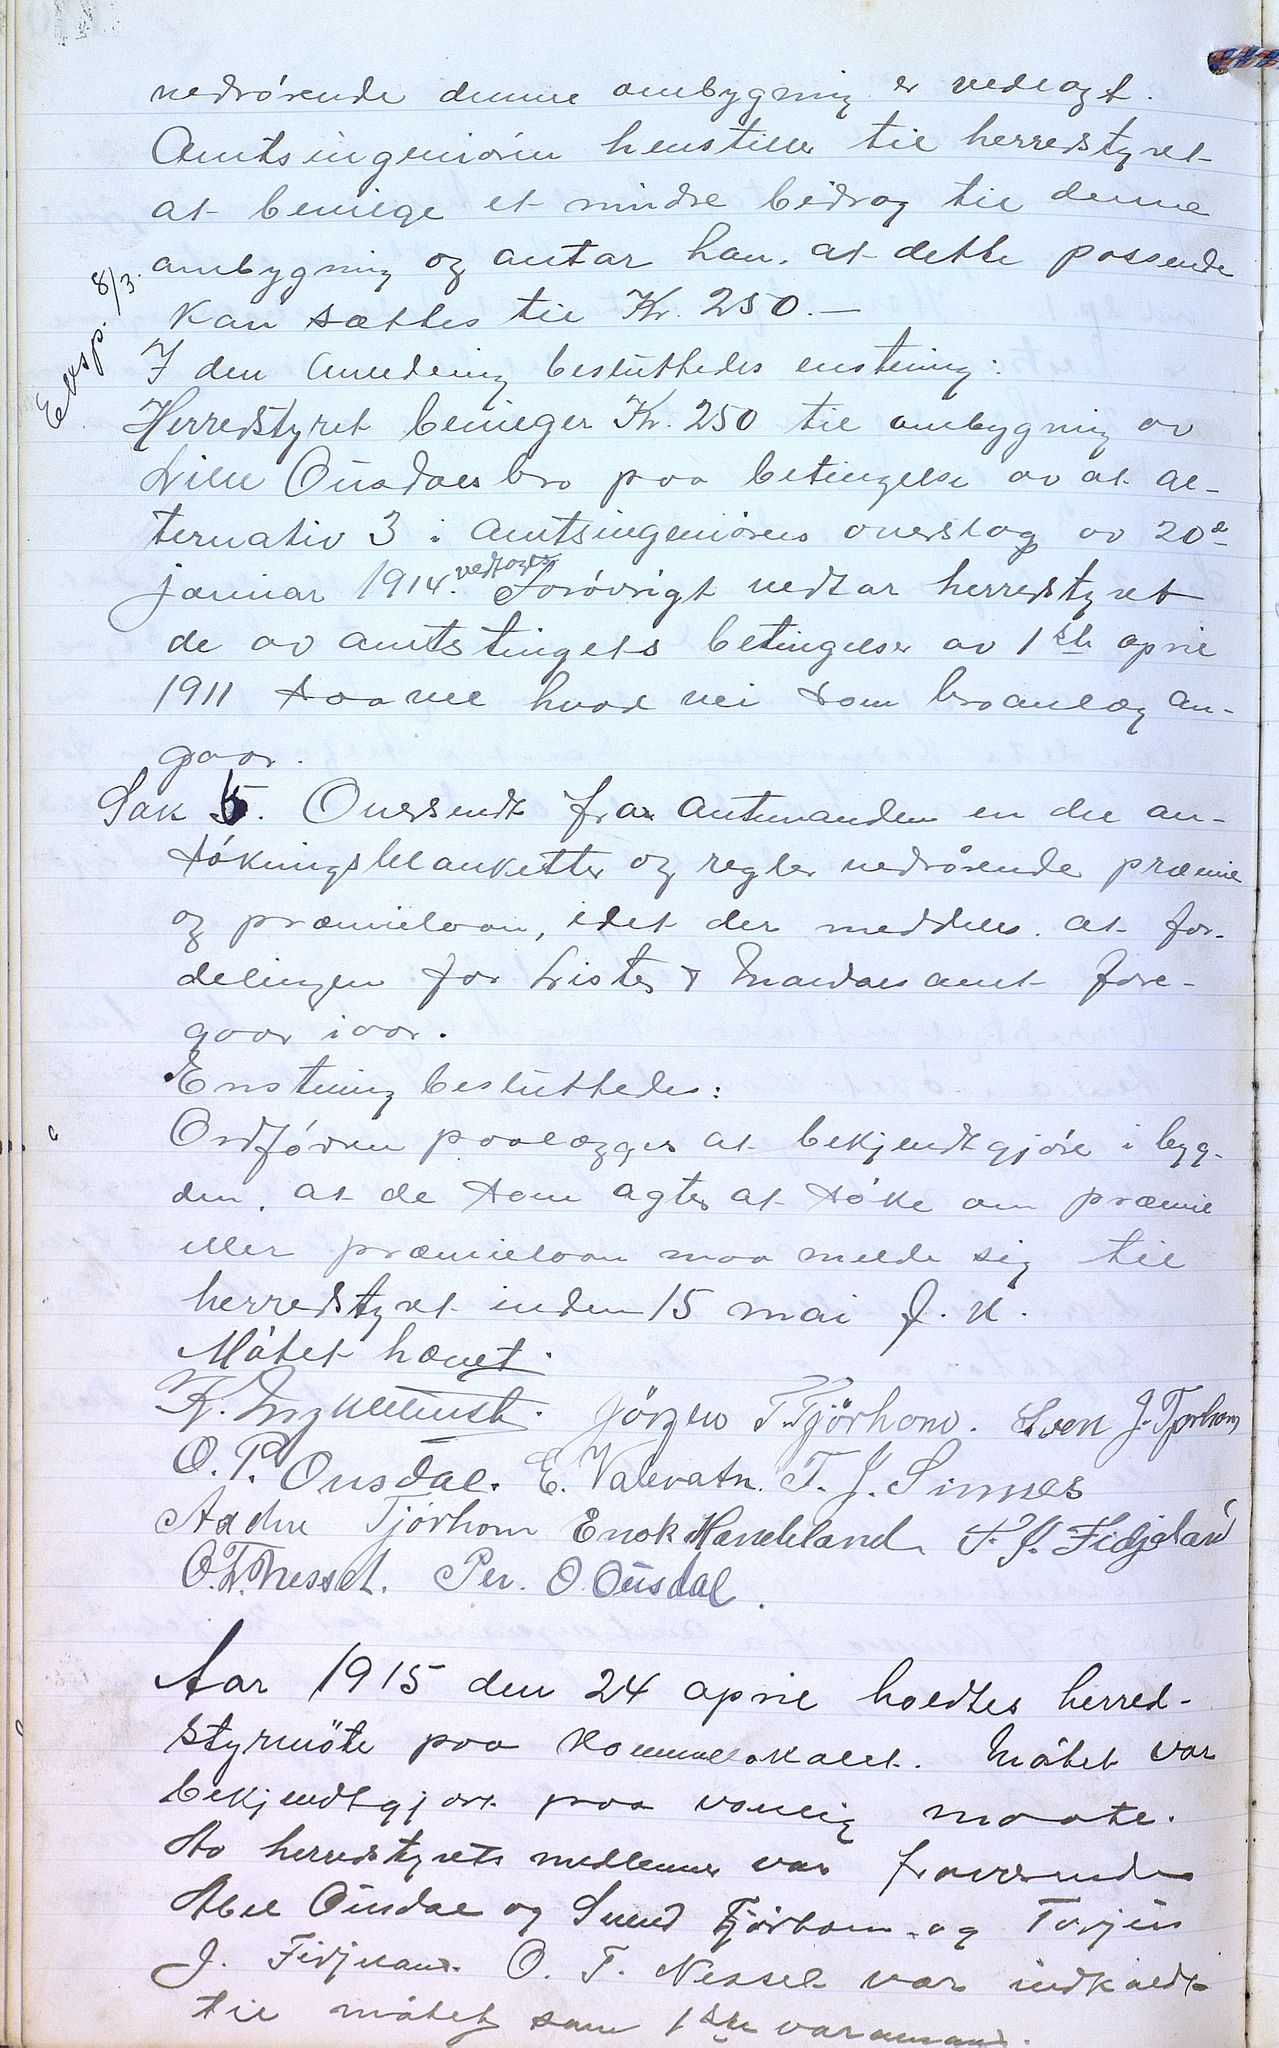 vedrørende denne ombygning er vedlagt.
Amtsingeniøren henstiller til herredstyret
at bevilge et mindre bidrag til denne
ombygning og antar han at dette passende
kan sættes til Kr. 250.—
Eksp. 8/3.
I den anledning besluttedes enstemig:
Herredstyret bevilger Kr. 250 til ombygning av
Lille Ousdals bro paa betingelse av at al-
ternativ 3 i amtsingeniørens overslag av 20de
januar 1914 vedtages. Forøvrigt vedtar herredstyret
de av amtstingets betingelser av 1ste april
1911 saavel hvad vei som broanlæg an-
gaar.
Sak 5. Oversendt fra amtmanden en del an-
søkningsblanketter og regler vedrørende præmie
og præmielaan, idet der meddeles at for-
delingen for Lister & Mandals amt fore-
gaar iaar.
Enstemig besluttedes:
Ordføreren paalægges at bekjendtgjøre i byg-
den, at de som agter at søke om præmie
eller præmielaan maa melde sig til
herredstyret inden 15 mai f. k.
Møtet hævet.
Jørgen T. Tjørhom. Sven J. Tjørhom
O. P. Ousdal. E. Valevatn. T. J. Sinnes
Tjørhom Enok Haneland T. J. Fidjeland
O. T. Nesset. Per. O. Ousdal.
Aar 1915 den 24 april holdtes herred-
styrmøte paa kommunelokalet. Møtet var
bekjendtgjort paa vanlig maate.
Av herredstyrets medlemmer var fraværende
Abel Ousdal og Svend Tjørhom og Torjus
J. Fidjeland. O. T. Nesset var indkaldt
til møtet som 1ste varamand.